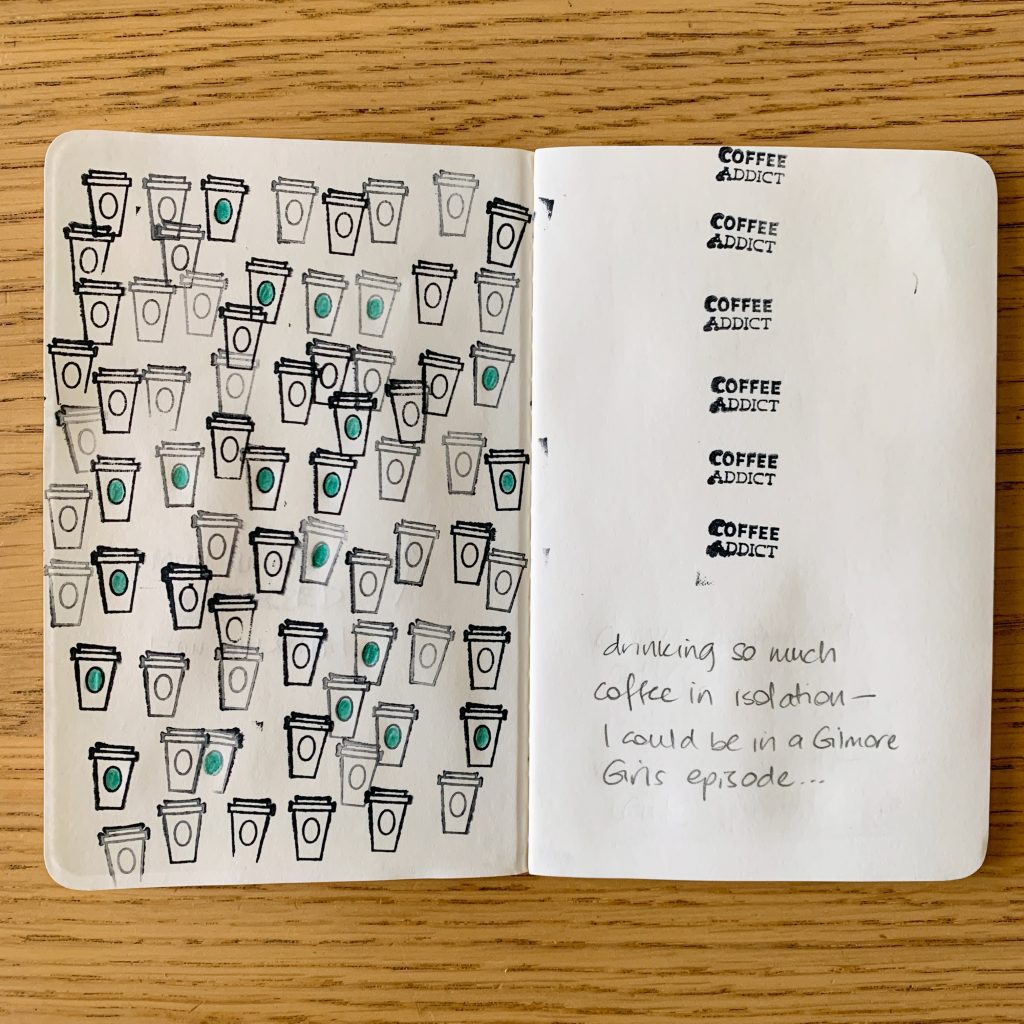 COFFEE
ADDICT
COFFEE
ADDICT
COFFEE
ADDICT
COFFEE
ADDICT
COFFEE
ADDICT
COFFEE
ADDICT
drinking so much
coffee in isolation—
I could be in a Gilmore
Girls episode...